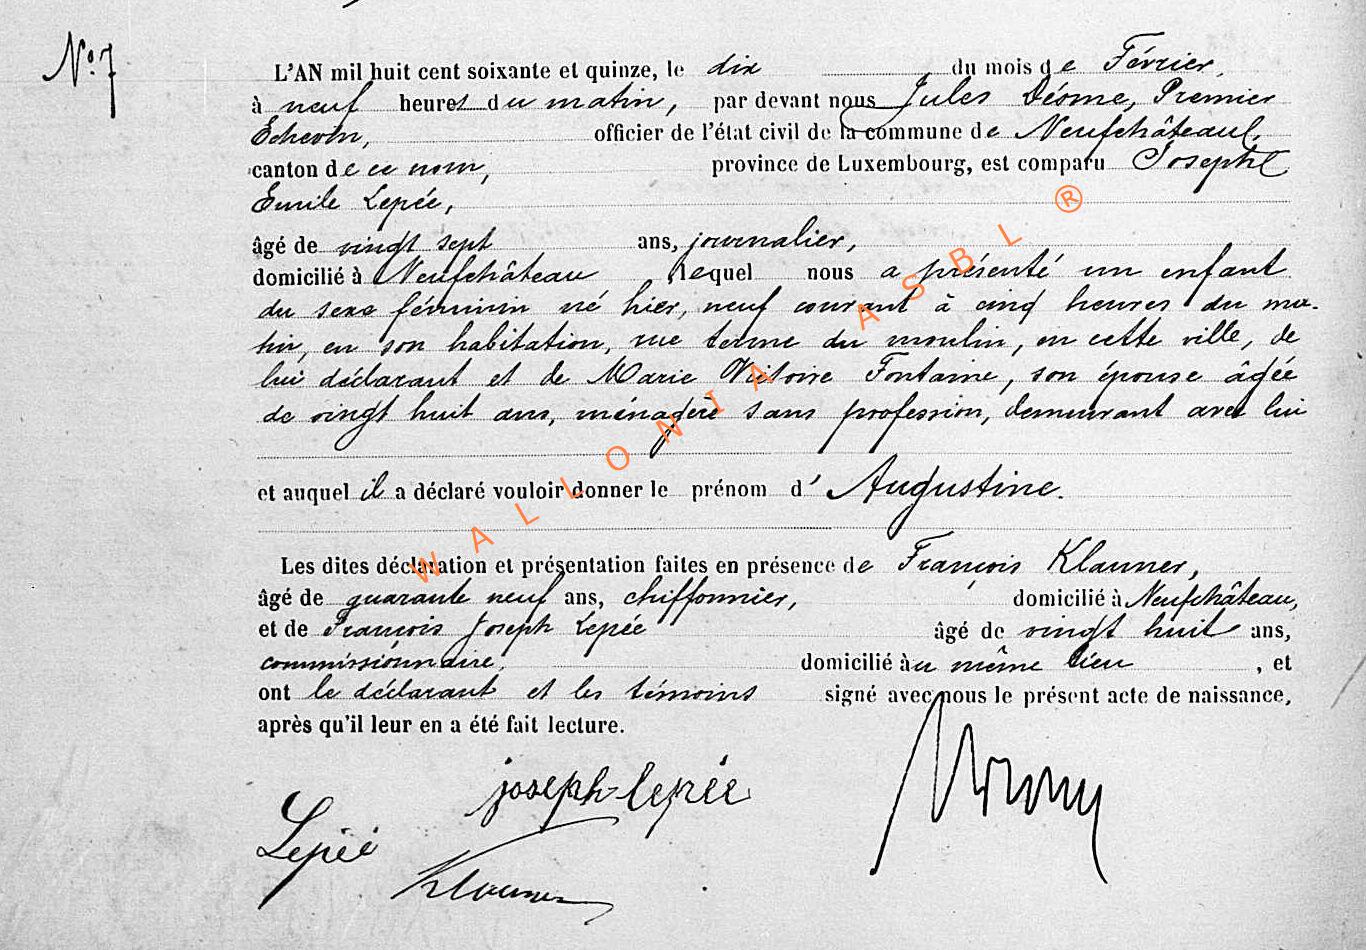 N° 7
L'AN mil huit cent soixante et quinze, le dix du mois de Février,
à neuf heures du matin, par devant nous Jules Déome, Premier
Echevin, officier de l'état civil de la commune de Neufchâteau,
canton de ce nom, province de Luxembourg, est comparu Joseph
Emile Lepée,
âgé de vingt sept ans, journalier,
domicilié à Neufchâteau lequel nous a présenté un enfant
du sexe féminin né hier, neuf courant à cinq heures du ma-
tin, en son habitation, rue terme du moulin, en cette ville, de
lui déclarant et de Marie Victoire Fontaine, son épouse âgée
de vingt huit ans, ménagère sans profession, demeurant avec lui
et auquel il a déclaré vouloir donner le prénom d' Augustine.
Les dites déclaration et présentation faites en présence de François Klauner,
âgé de quarante neuf ans, chiffonnier, domicilié à Neufchâteau,
et de François Joseph Lepée âgé de vingt huit ans,
commissionnaire, domicilié au même lieu, et
ont le déclarant et les témoins signé avec nous le présent acte de naissance,
après qu'il leur en a été fait lecture.
joseph lepée
Lepéé
Klauner
WALLONIA ASBL ®